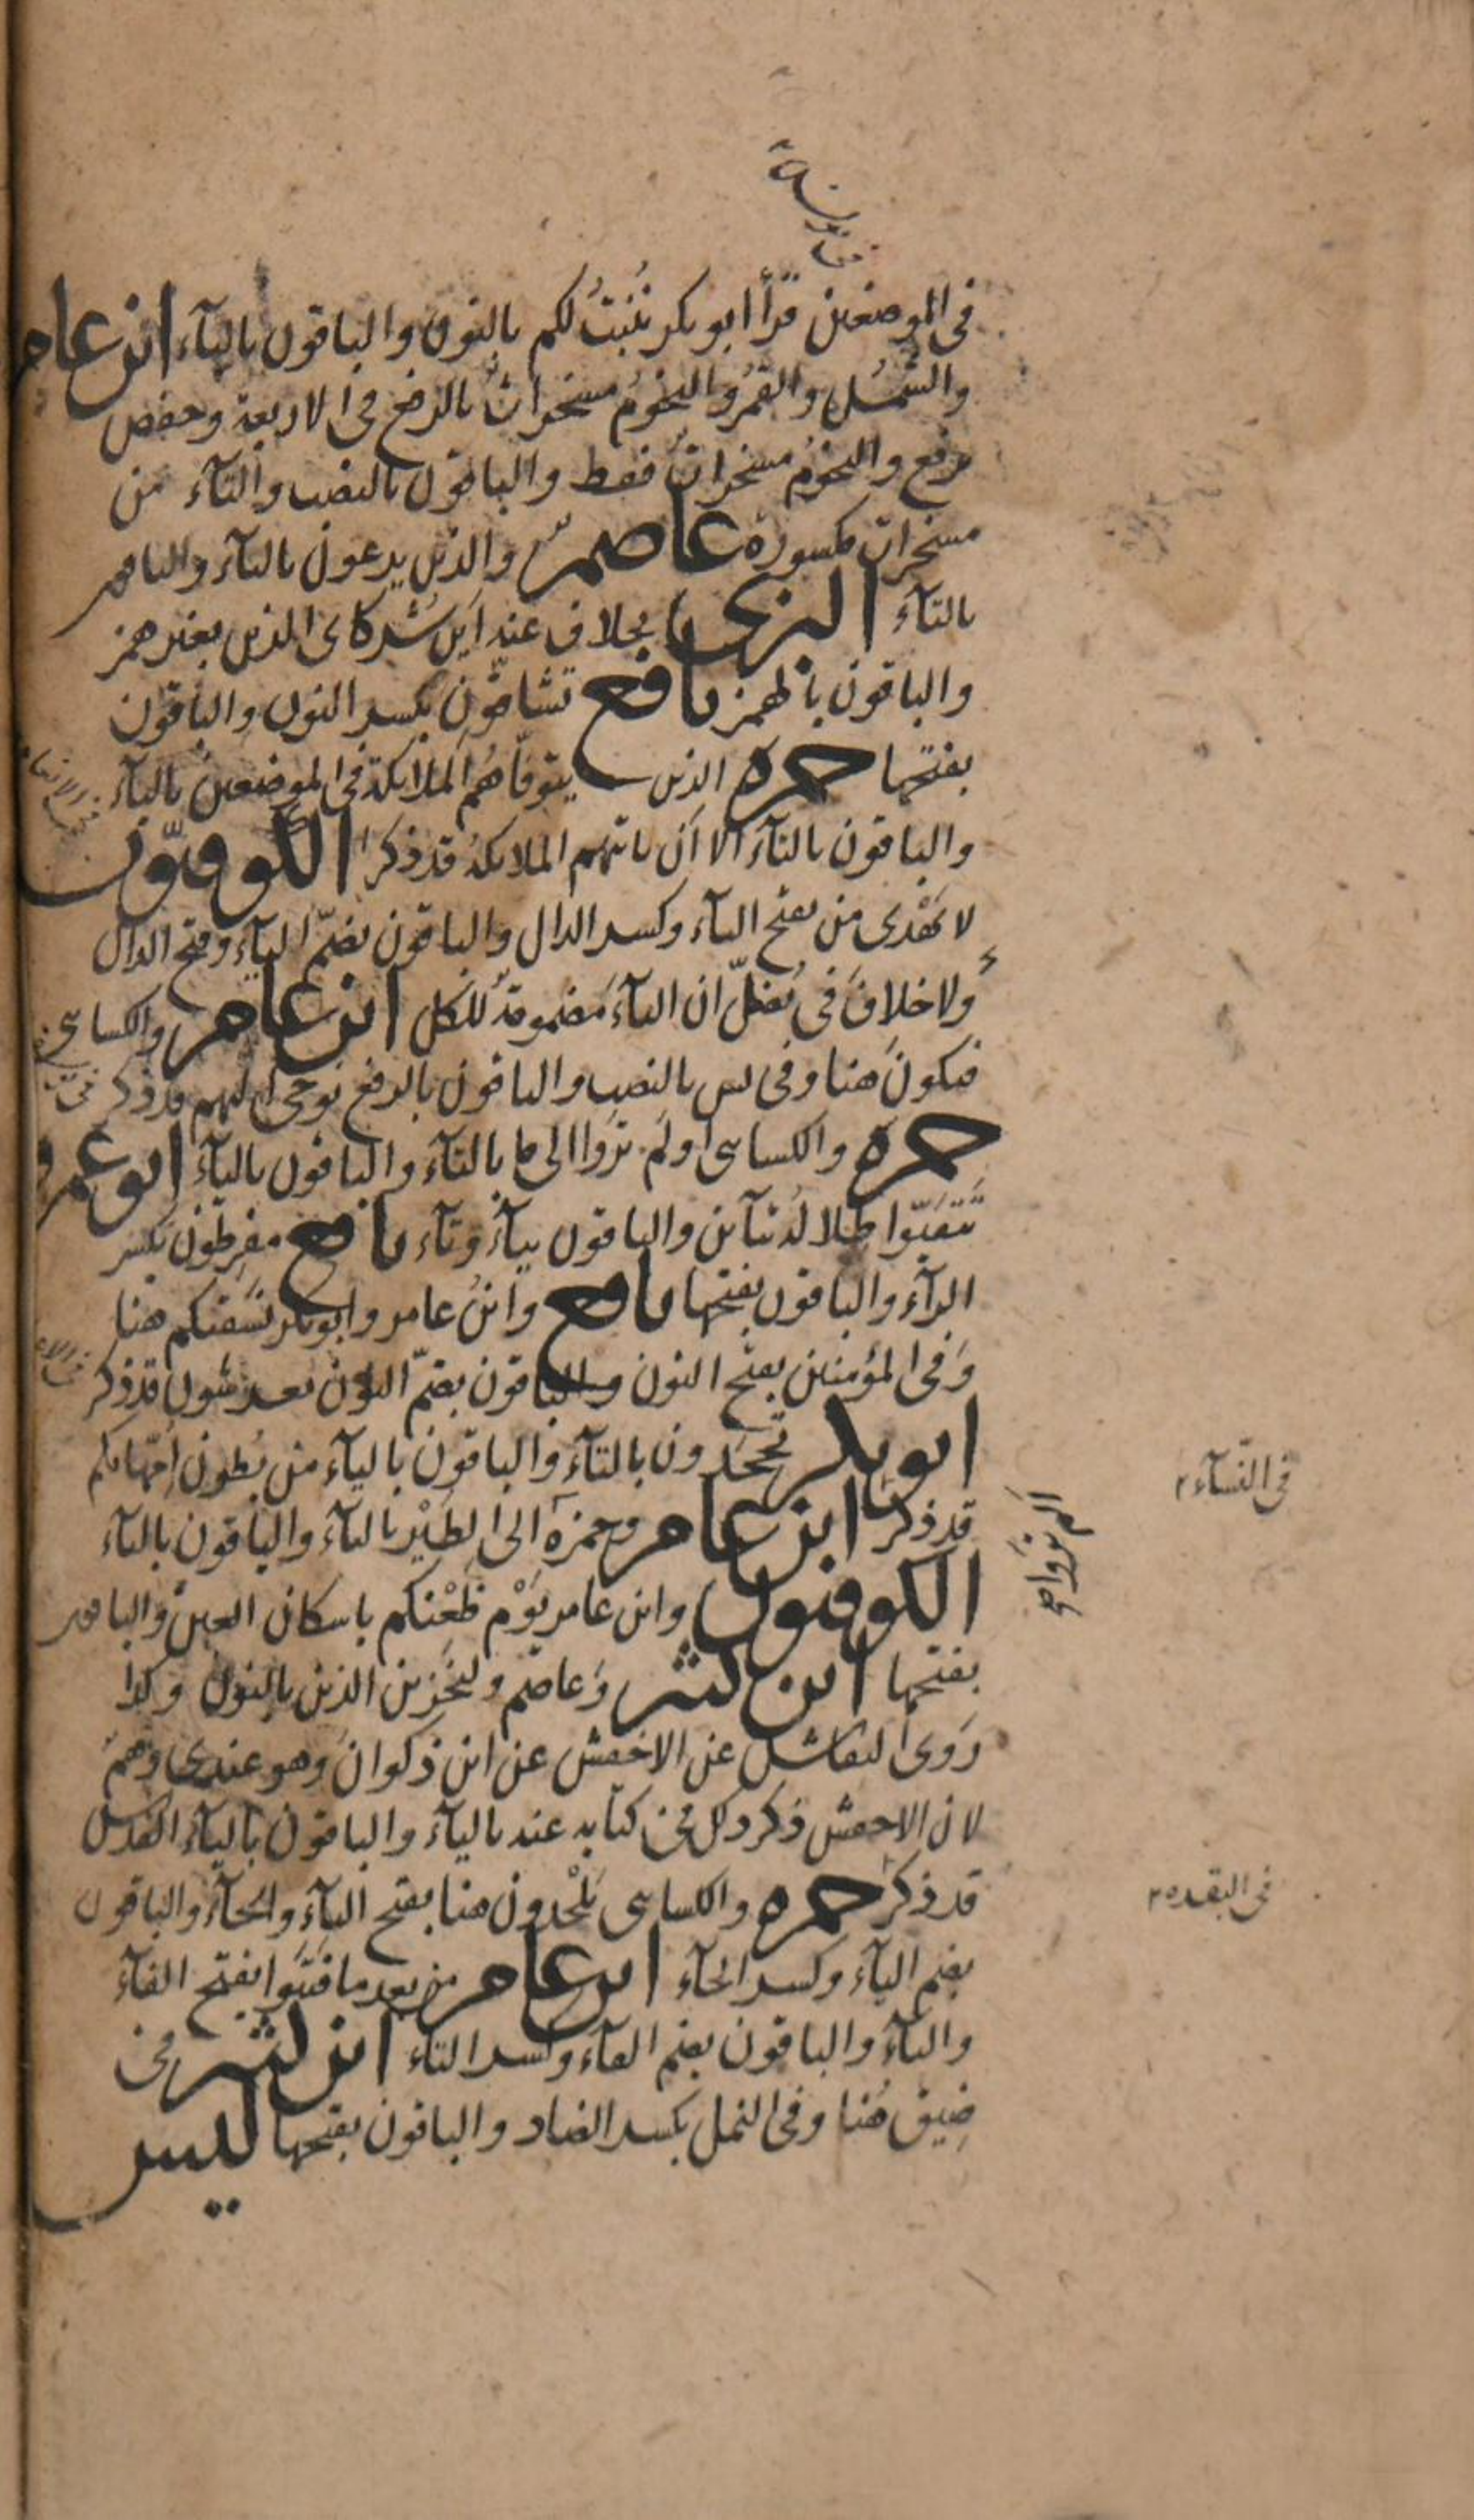 في الموضعين قرأ ابو بكر نُنْبِتُ لكم بالنون والباقون باليآء ابن عامر
والشمسُ والقمرُ والنجومُ مسخراتٌ بالرفع في الاربعة وحفص
برفع والنجومُ مسخراتٌ فقط والباقون بالنصب والتآء من
مسخرات مكسورة عاصم والذين يدعون باليآء والباقون
بالتآء البزي بخلاف عنه اين شركاى الذين بغير همز
والباقون بالهمز نافع تشاقونِ بكسر النون والباقون
بفتحها حمزة الذين يتوفاهم الملائكة في الموضعين باليآء
والباقون بالتآء الا ان ياتيهم الملائكة قد ذكر الكوفيّون
في الانعام
لا يَهْدى من بفتح اليآء وكسر الدال والباقون بضمّ اليآء وفتح الدال
ولا خلافَ في يُضلّ ان اليآءَ مضمومةٌ للكل ابن عامر والكسائي
فيكونَ هنا وفي يس بالنصب والباقون بالرفع نوحى اليهم قد ذكر
حمزة والكسائى اولم تروا الى ما بالتآء والباقون باليآء ابو عمرو
تَتَفَيّؤا ظلالُه بتآين والباقون بيآء وتآء نافع مفرِطون بكسر
الرآء والباقون بفتحها نافع وابنُ عامر وابو بكر نَسقيكم هنا
وفي المؤمنين بفتح النون والباقون بضمّ النون يعرشون قد ذكر
ابو بكر تجحدون بالتآء والباقون باليآء من بُطون اِمّهاتكم
قد ذكر ابن عامر وحمزة الم تروا الى الطَيْر بالتآء والباقون باليآء
في النسآء
الكوفيون وابن عامر يَوْم ظَعْنكم باسكان العين والباقون
بفتحها ابن كثير وَعاصم ولنجزين الذين بالنون وكذا
رَوى النقاش عن الاخفش عن ابن ذكوانَ وهو عندي وَهمٌ
لان الاخفش ذكر ذلك في كتابه عنه باليآء والباقون باليآء القدس
قد ذكر حمزة والكسائى يَلْحدون هنا بفتح اليآء والحآء والباقون
في البقره
بضم اليآء وكسر الحآء ابن عامر من بعد ما فَتَنوا بفتح الفآء
والتآء والباقون بضم الفآء وكسر التآء ابن كثير في
ضِيق هُنا وفي النمل بكسر الضاد والباقون بفتحها ليس